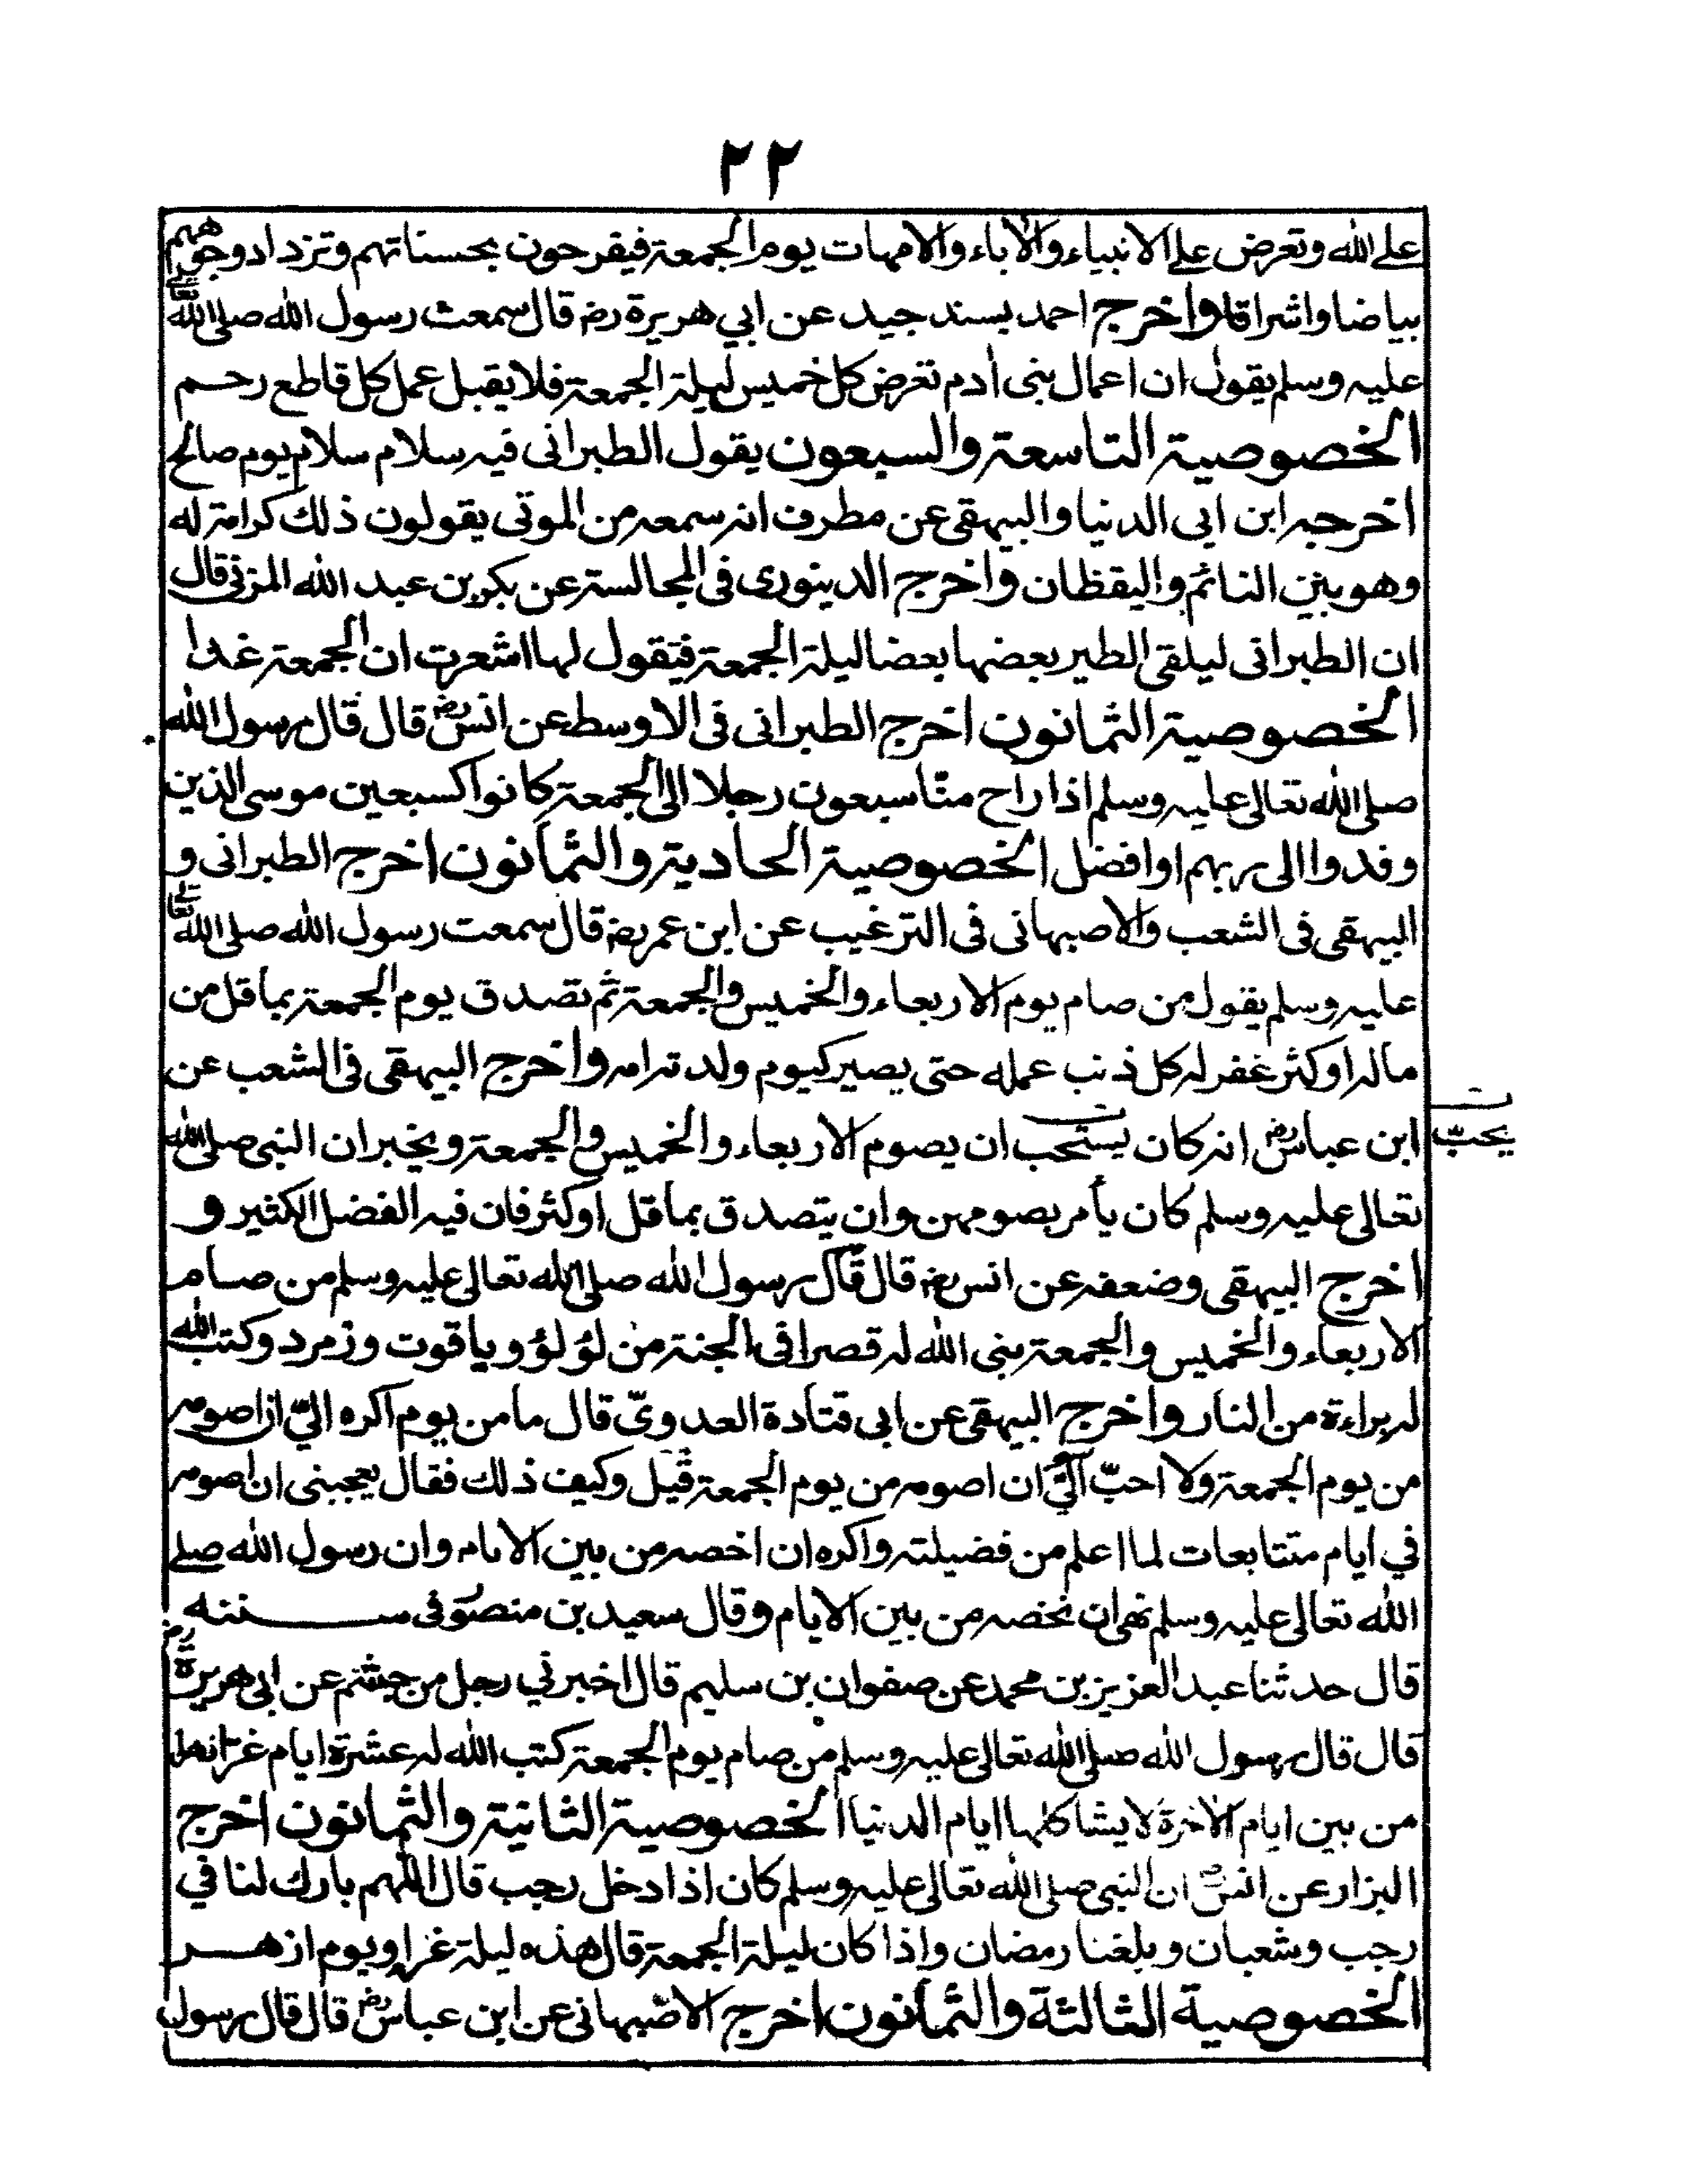 ٢٢
على الله وتعرض على الانبياء والاباء والامهات يوم الجمعة فيفرحون بحسناتهم وتزداد وجوههم
بياضا واشراقا واخرج احمد بسند جيد عن ابي هريرة رضـ قال سمعت رسول الله صلى الله تعالى
عليه وسلم يقول ان اعمال بنى ادم تعرض كل خميس ليلة الجمعة فلا يقبل عمل كل قاطع رحم
الخصوصية التاسعة والسبعون يقول الطبرانى فيه سلام سلام يوم صالح
اخرجه ابن ابى الدنيا والبيهقى عن مطرف انه سمعه من الموتى يقولون ذلك كرامة له
وهو بين النائم واليقظان واخرج الدينورى فى المجالسة عن بكر بن عبد الله المزنى قال
ان الطبرانى ليلقى الطير بعضها بعضا ليلة الجمعة فتقول لها اشعرت ان الجمعة غدا
الخصوصية الثمانون اخرج الطبرانى فى الاوسط عن انس رضـ قال قال رسول الله
صلى الله تعالى عليه وسلم اذا راح منّا سبعون رجلا الى الجمعة كانوا كسبعين موسى الذين
وفدوا الى ربهم او افضل الخصوصية الحادية والثمانون اخرج الطبرانى و
البيهقى فى الشعب والاصبهانى فى الترغيب عن ابن عمر رضـ قال سمعت رسول الله صلى الله تعالى
عليه وسلم يقول من صام يوم الاربعاء والخميس والجمعة ثم تصدق يوم الجمعة بما قل من
ماله او كثر غفر له كل ذنب عمله حتى يصير كيوم ولدته امه واخرج البيهقى فى الشعب عن
ابن عباس رضـ انه كان يستحب ان يصوم الاربعاء والخميس والجمعة ويخبر ان النبى صلى الله
يحبّ
تعالى عليه وسلم كان يأمر بصومهن وان يتصدق بما قل او كثر فان فيه الفضل الكثير و
اخرج البيهقى وضعفه عن انس رضـ قال قال رسول الله صلى الله تعالى عليه وسلم من صام
الاربعاء والخميس والجمعة بنى الله له قصرا فى الجنة من لؤلؤ وياقوت وزمرد وكتب الله
له براءة من النار واخرج البيهقى عن ابى قتادة العدوىّ قال ما من يوم اكره الىّ ان اصومه
من يوم الجمعة ولا احبّ الىّ ان اصومه من يوم الجمعة قيل وكيف ذلك فقال يعجبنى ان اصومه
في ايام متتابعات لما اعلم من فضيلته واكره ان اخصه من بين الايام وان رسول الله صلى
الله تعالى عليه وسلم نهى ان نخصه من بين الايام وقال سعيد بن منصور فى سننه
قال حدثنا عبد العزيز بن محمد عن صفوان بن سليم قال اخبرني رجل من جشم عن ابى هريرة رضـ
قال قال رسول الله صلى الله تعالى عليه وسلم من صام يوم الجمعة كتب الله له عشرة ايام غر
من بين ايام الاخرة لا يشاكلها ايام الدنيا الخصوصية الثانية والثمانون اخرج
البزار عن انس ان النبى صلى الله تعالى عليه وسلم كان اذا دخل رجب قال اللهم بارك لنا في
رجب وشعبان وبلغنا رمضان واذا كان ليلة الجمعة قال هذه ليلة غرا ويوم ازهر
الخصوصية الثالثة والثمانون اخرج الاصبهانى عن ابن عباس رضـ قال قال رسول